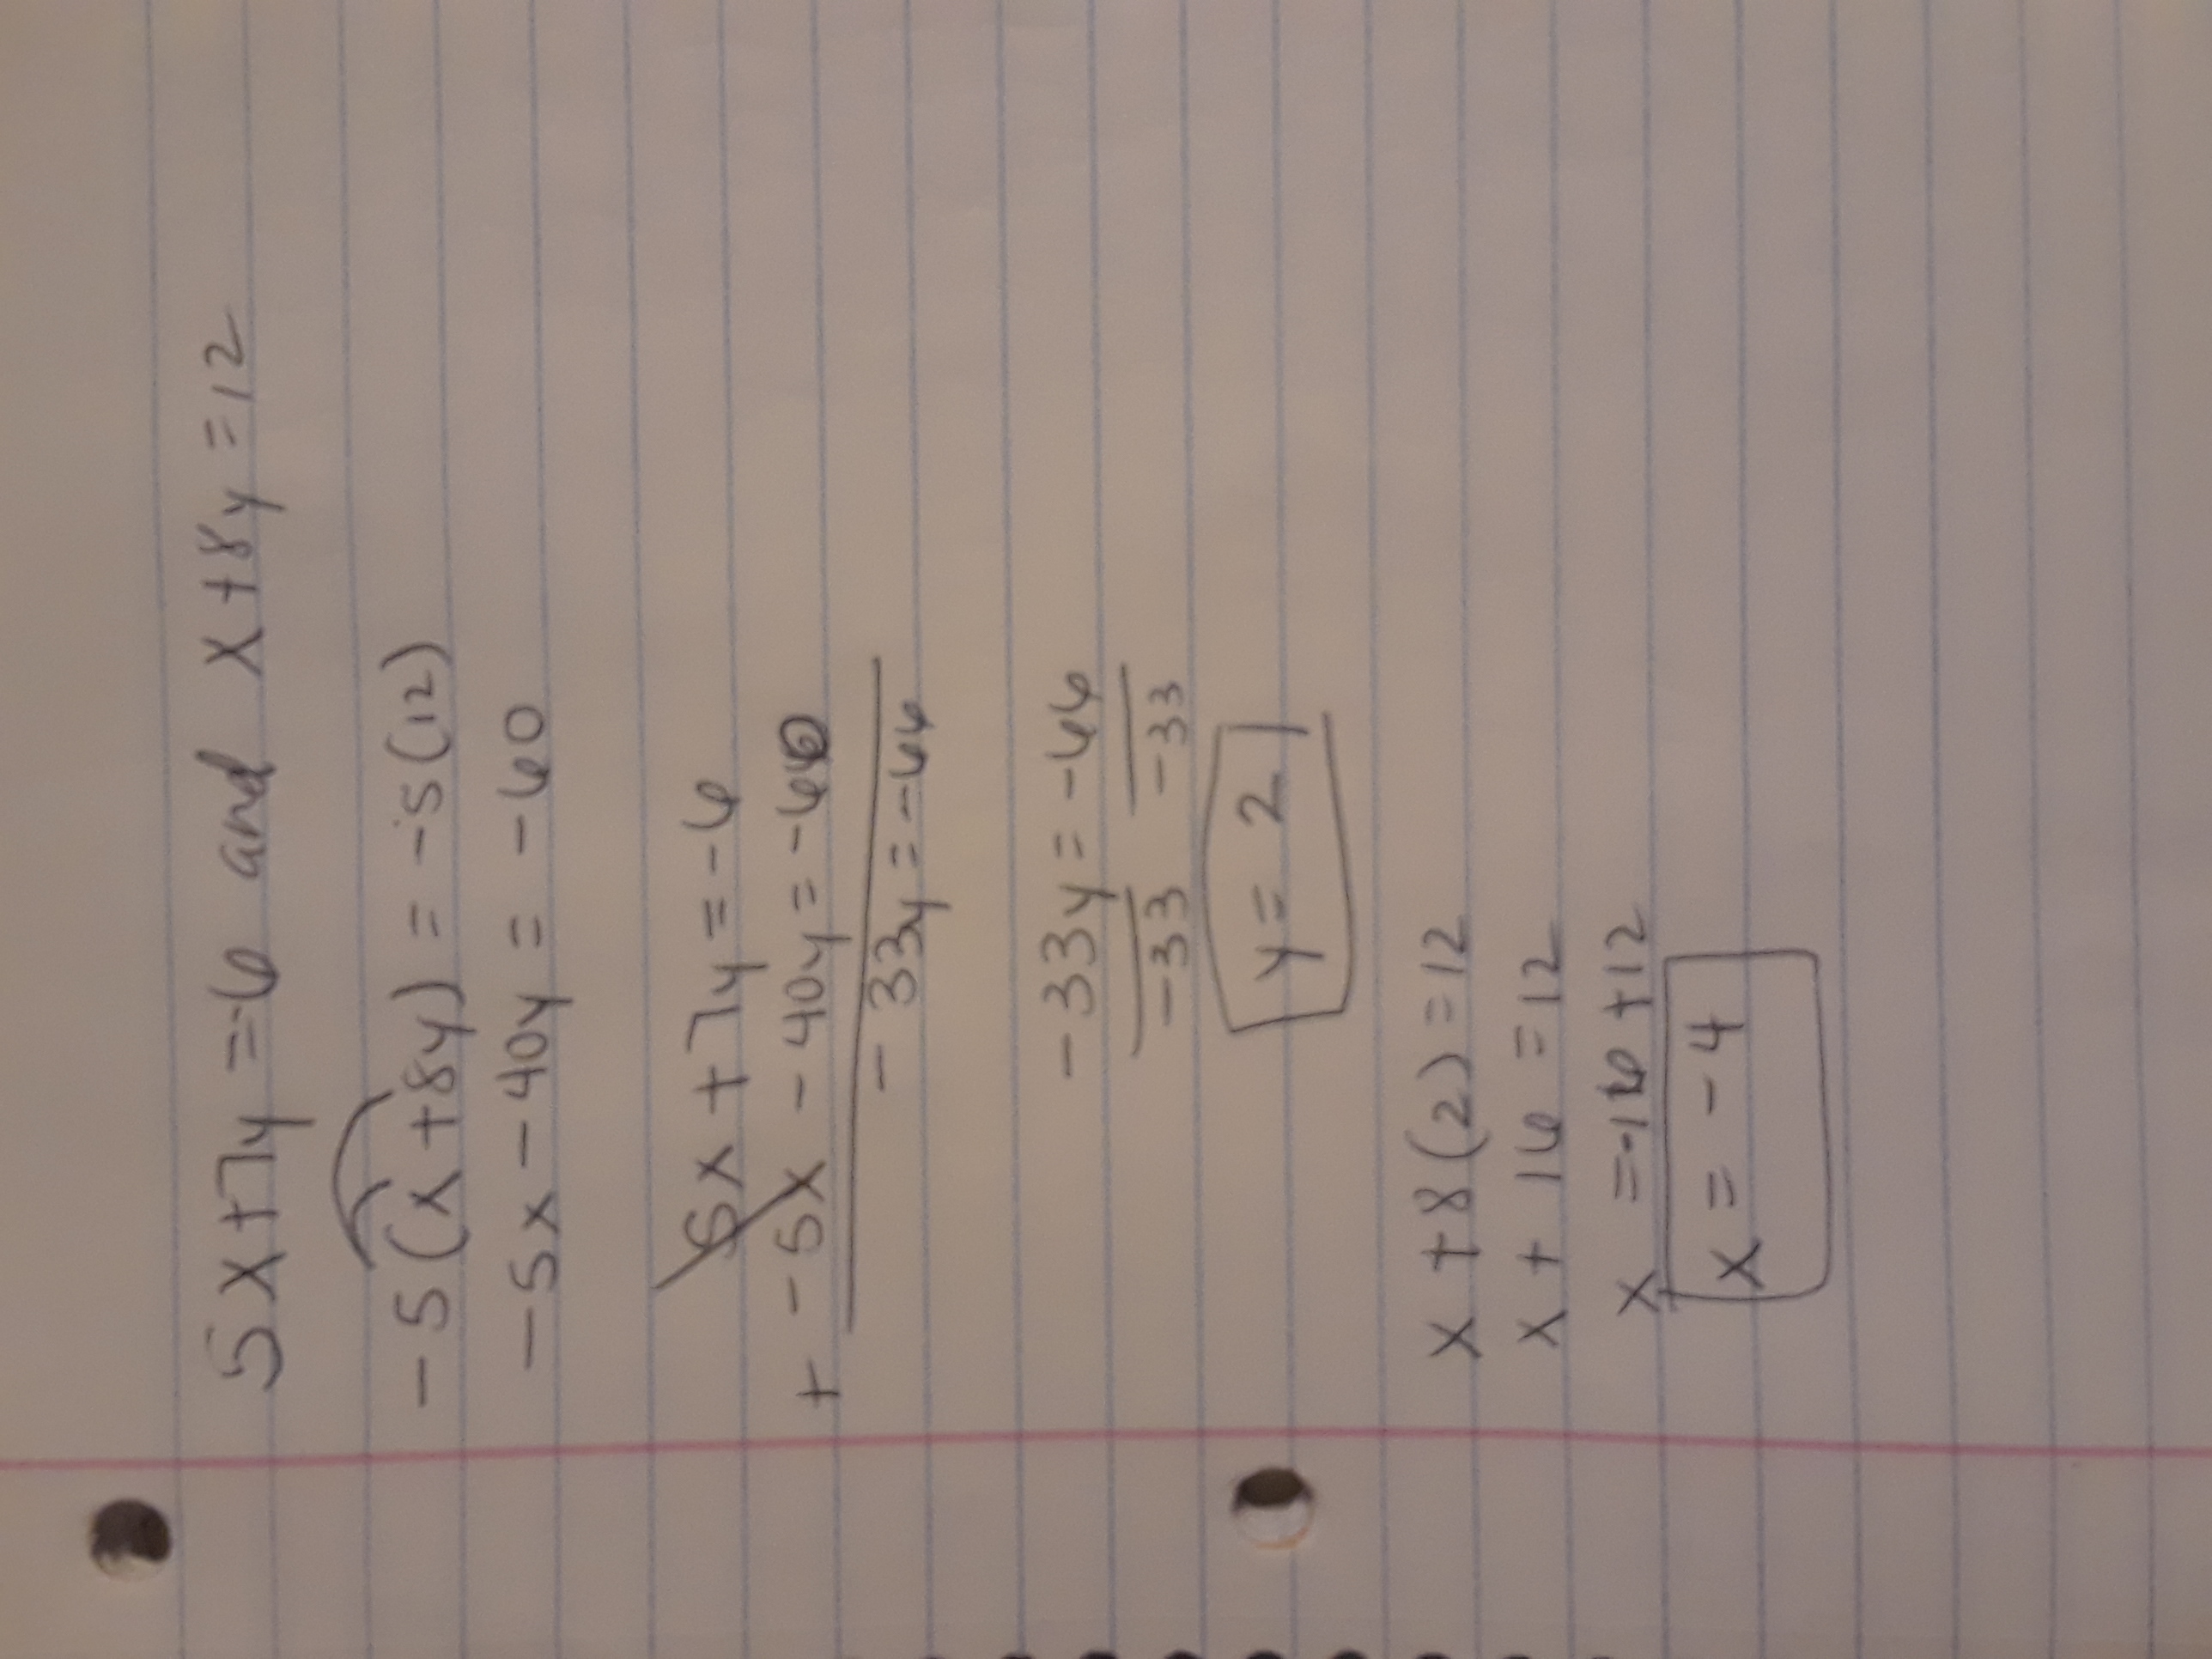 5x+7y=-6 and x+8y=12
-5(x+8y)=-5(12)
-5x-40y=-60
5x+7y=-6
+ -5x-40y=-60
-33y=-66
-33y=-66
-33 -33
y=2
x+8(2)=12
x+16=12
x=-16+12
x=-4